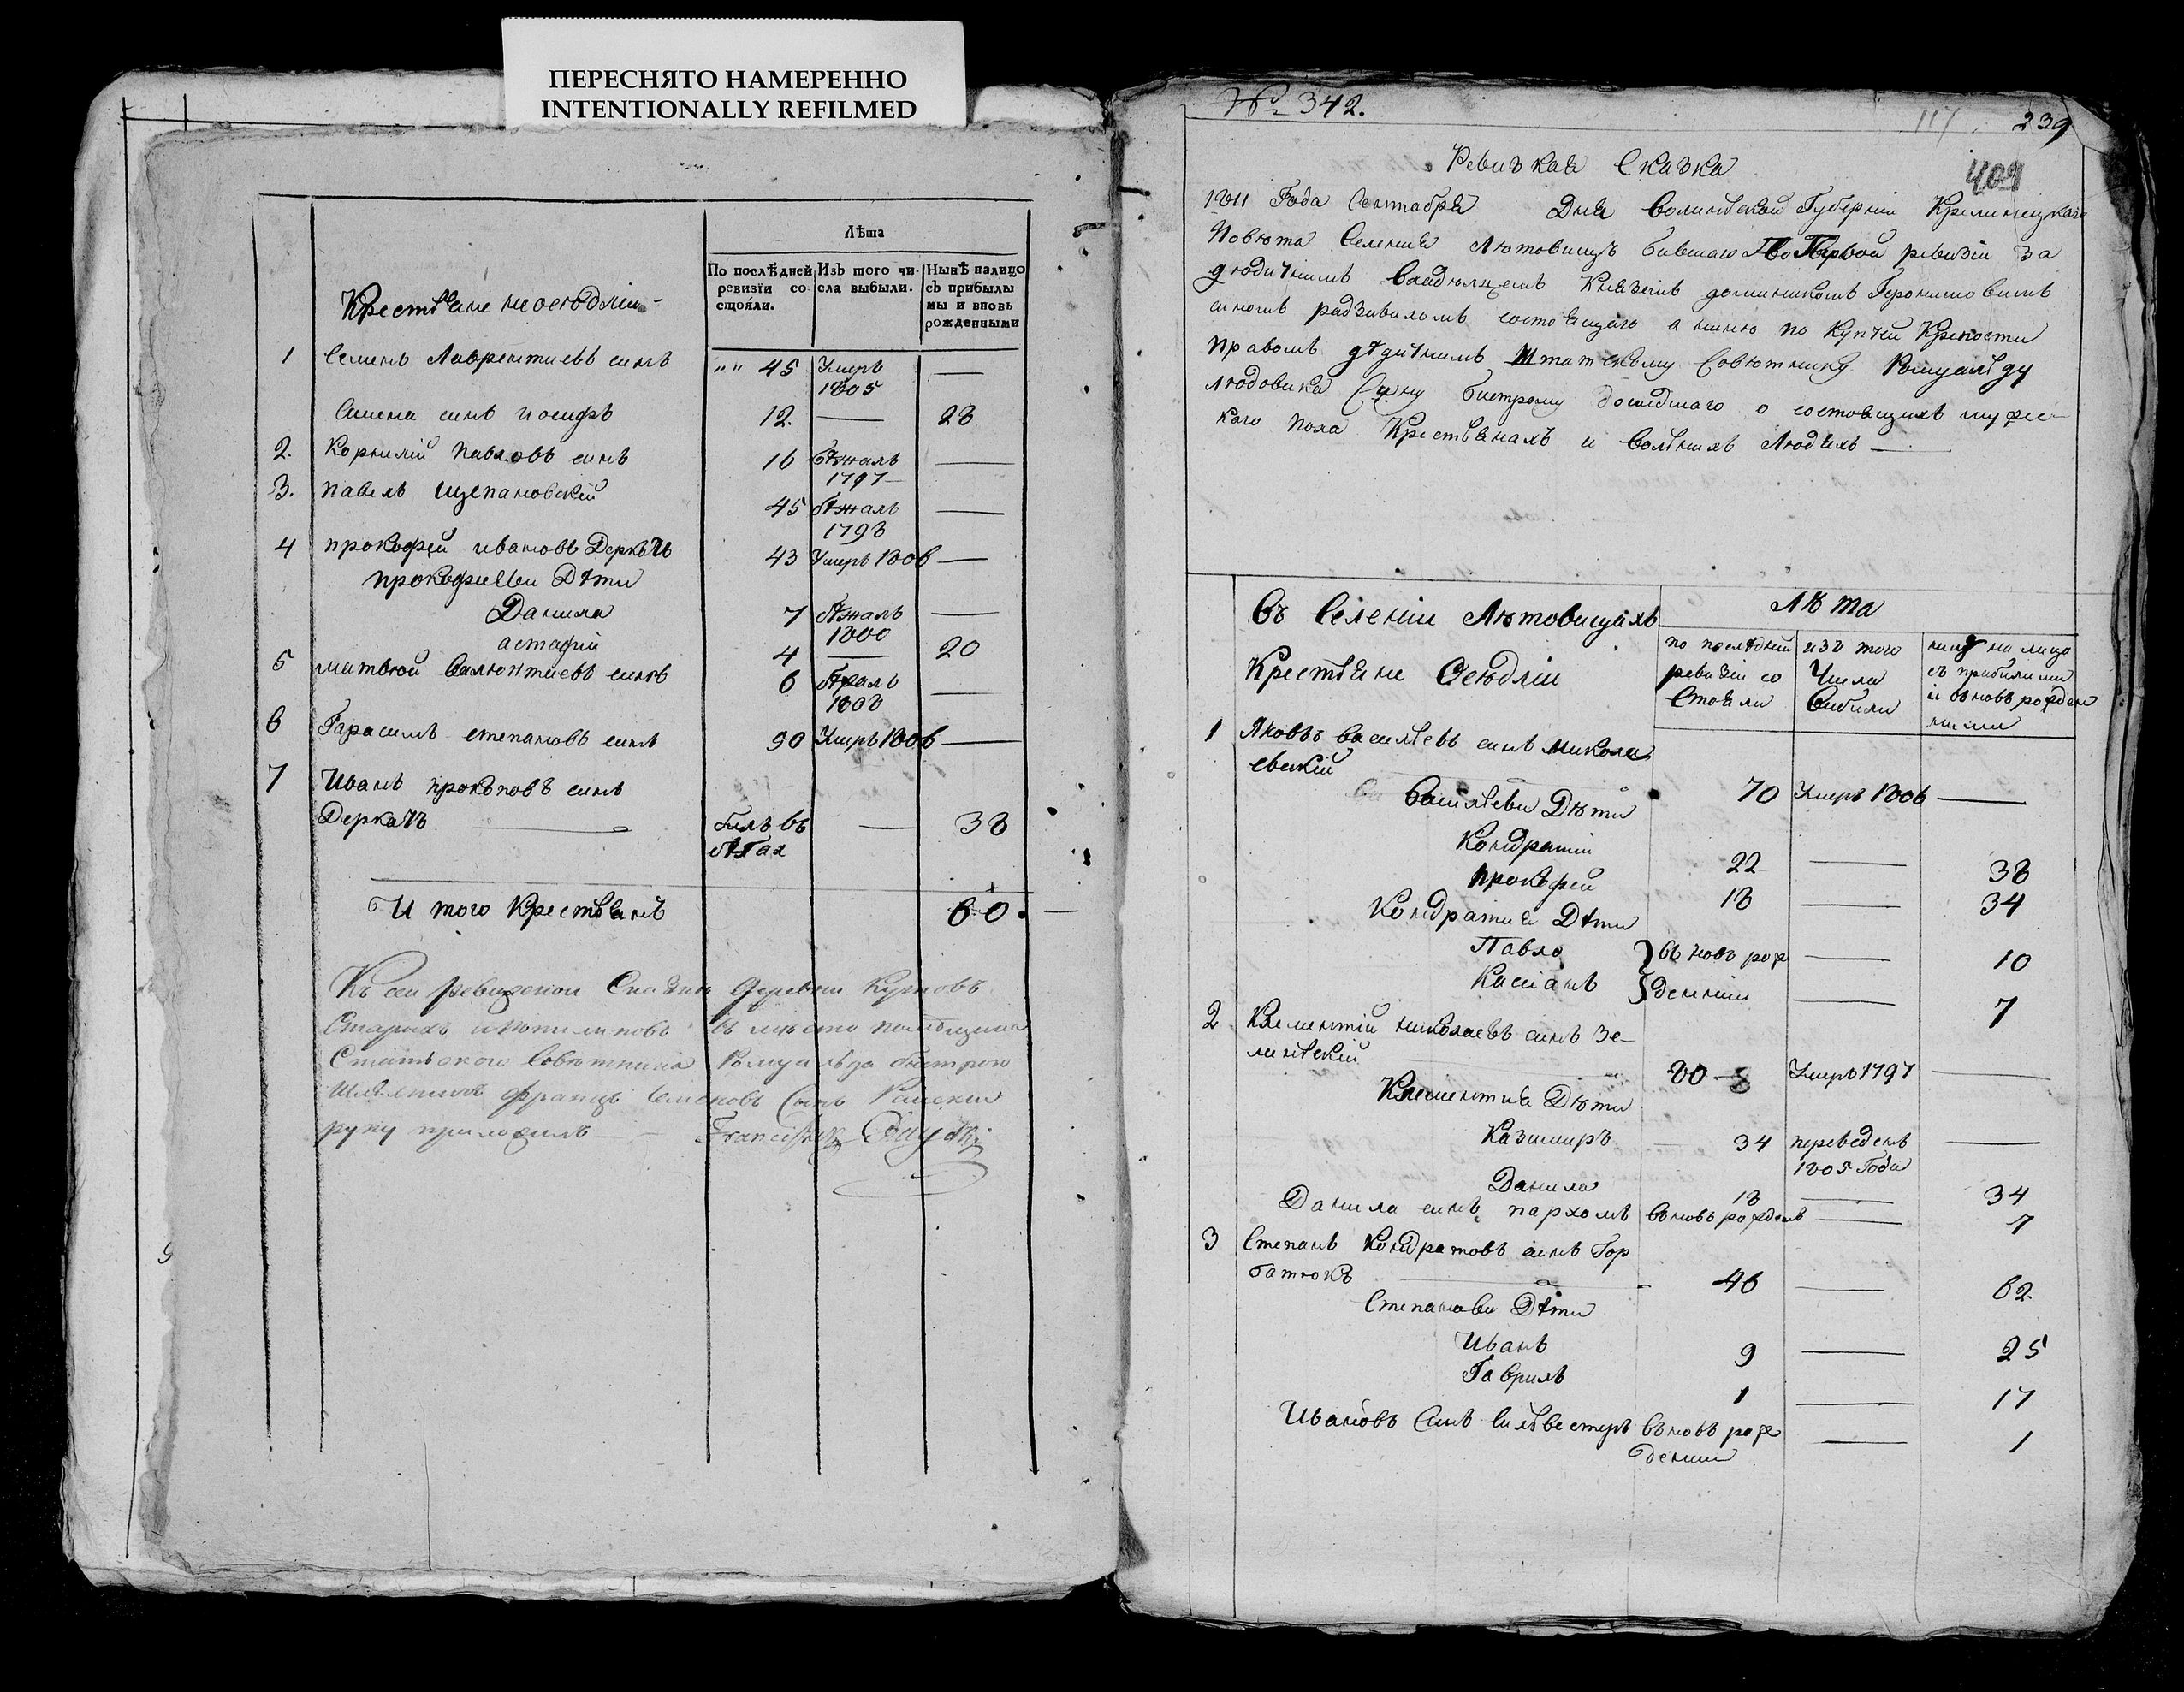 ПЕРЕСНЯТО НАМЕРЕННО
INTENTIONALLY REFILMED
Крествяне неоседліи
Лѣта
По послѣдней ревизїи со- стояли.
Изъ того чи- сла выбыли.
Нынѣ налицо съ прибылы ми и вновь рожденными
1 Семенъ Лаврентиевъ синъ 45 Умеръ 1805 —
Симена синъ иосифъ 12. — 28
2. Корнилій Павловъ синъ 16 бѣжалъ 1797 —
3. Павелъ Щепановскій 45 бѣжалъ 1798 —
4 прокофей ивановъ Деркачъ 43 Умеръ 1806 —
прокофиеви Дѣти
Данила 7 бѣжалъ 1800 —
астафій 4 — 20
5 матвѣй Валѣнтиевъ синъ 6 1808 —
6 Гарасимъ степановъ синъ 90 Умеръ 1806 —
7 Иванъ прокоповъ синъ
Деркачъ билъ въ бѣгах — 38
И того Крествянъ 60.
Къ сеи ревизскои Сказки деревни
Старыхъ въ мѣсто помѣщика
Совѣтника Ромуальда быстрого
Францъ Сынъ
руку приложилъ — Franciszek
№ 342.
117 239
409
Ревизкая Сказка
1811 Года Сентабря Дня Волинской Губерніи Кременецкаго
Повѣта Селения Лютовищъ бившаго По Первой ревизіи За
дѣдичнимъ Владѣлцемъ Княземъ доминикомъ Геронимовимъ
синомъ радзивиломъ состоящаго а нинѣ по Купчей Крепости
Правомъ дѣдичнимъ Штатскому Совѣтнику Ромуалду
людовика Сину бистрому дошедшаго о состоящихъ мужес-
каго пола Крествянахъ и Волнихъ Людяхъ —
Въ Селеніи Лютовищахъ
Лѣта
Крествяне Оседліи
по послѣдней ревизіи со Стояли
изъ того Числа Вибили
нинѣ на лицо съ прибилими и вновь рожден ними
1 Яковъ васильевъ синъ Микола
евскій 70 Умеръ 1806 —
Васильеви Дѣти
Кондратій 22 — 38
прокофей 18 — 34
Кондратия Дѣти
Павло } вновь рож — 10
Касіанъ } денніи — 7
2 Клементій николаевъ синъ Зе-
линскій 80 Умеръ 1797 —
Клементия Дѣти
Казимиръ 34 переведенъ 1805 Года —
Данила 18 — 34
Данила синъ пархомъ вновь рожденъ — 7
3 Степанъ Кондратовъ синъ Гор
батюкъ 46 — 62.
Степанови Дѣти
Иванъ 9 — 25
Гаврилъ 1 — 17
Ивановъ Синъ Сильвестеръ вновь рож
дении — 1